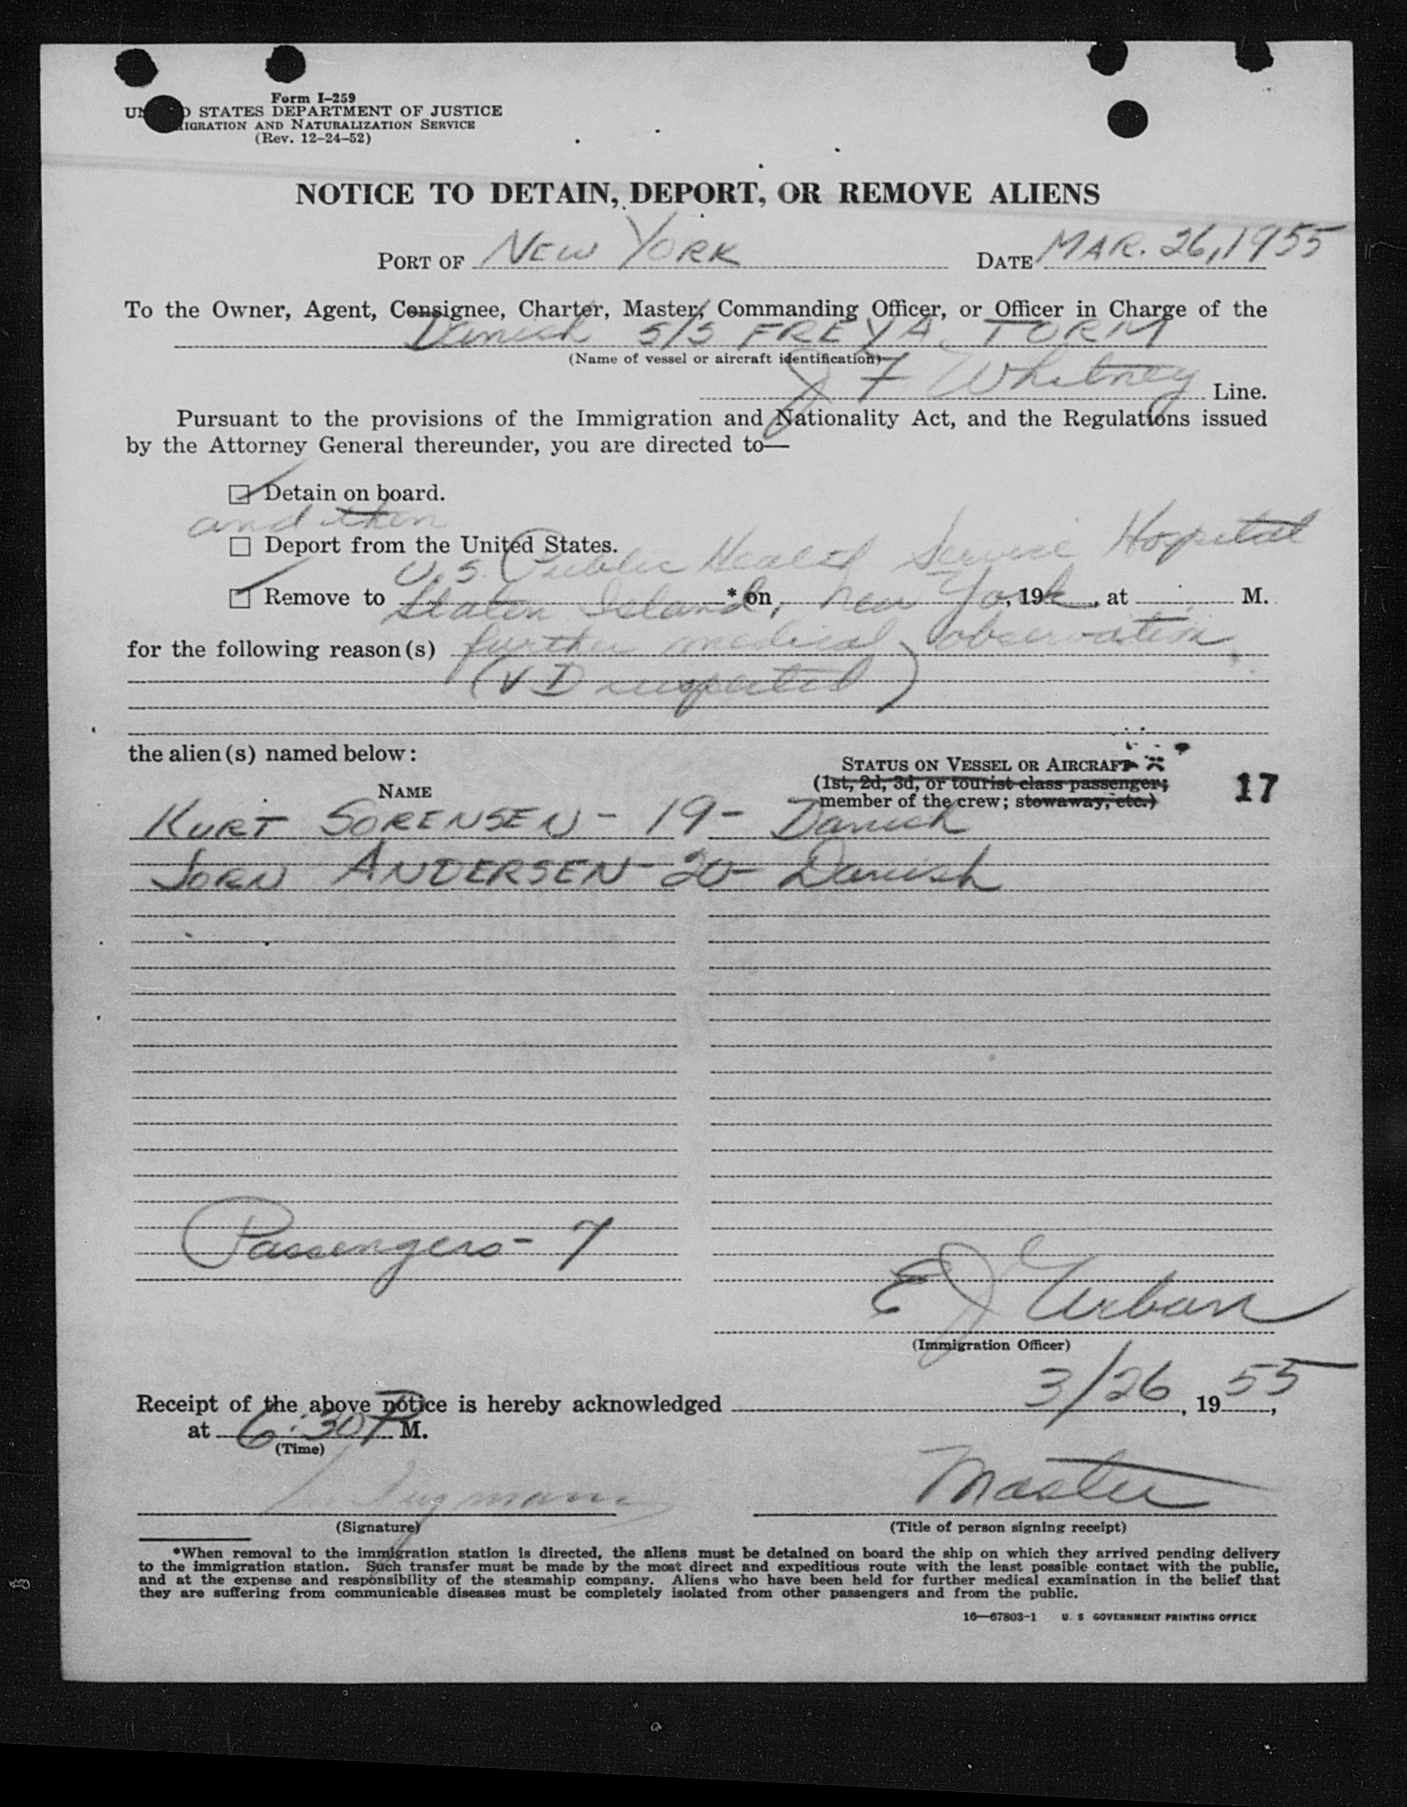 Form I-259
UNITED STATES DEPARTMENT OF JUSTICE
IMMIGRATION AND NATURALIZATION SERVICE
(Rev. 12-24-52)
NOTICE TO DETAIN, DEPORT, OR REMOVE ALIENS
PORT OF NEW YORK DATE MAR. 26, 1955
To the Owner, Agent, Consignee, Charter, Master, Commanding Officer, or Officer in Charge of the
Danish S/S FREYA TORM
(Name of vessel or aircraft identification)
J F Whitney Line.
Pursuant to the provisions of the Immigration and Nationality Act, and the Regulations issued
by the Attorney General thereunder, you are directed to—
Detain on board.
and then
Deport from the United States.
U.S. Public Health Service Hospital
Remove to Staten Island, New York *on , 19 , at M.
for the following reason(s) further medical observation
(VD suspected)
the alien(s) named below:
STATUS ON VESSEL OR AIRCRAFT
(1st, 2d, 3d, or tourist class passenger;
NAME member of the crew; stowaway, etc.) 17
KURT SORENSEN - 19 - Danish
JORN ANDERSEN - 20 - Danish
Passengers - 7
E J Urban
(Immigration Officer)
Receipt of the above notice is hereby acknowledged 3/26, 1955,
at 6:30 P M.
(Time)
Master
(Signature) (Title of person signing receipt)
*When removal to the immigration station is directed, the aliens must be detained on board the ship on which they arrived pending delivery
to the immigration station. Such transfer must be made by the most direct and expeditious route with the least possible contact with the public,
and at the expense and responsibility of the steamship company. Aliens who have been held for further medical examination in the belief that
they are suffering from communicable diseases must be completely isolated from other passengers and from the public.
16—67803-1 U. S. GOVERNMENT PRINTING OFFICE